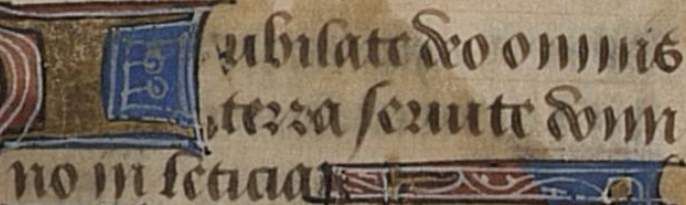 Iubilate deo omnis
terra seruite domi
no in leticia